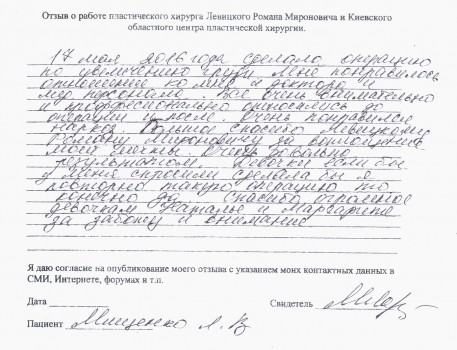 Отзыв о работе пластического хирурга Левицкого Романа Мироновича и Киевского
областного центра пластической хирургии.
17 мая 2016 года сделала операцию
по увеличению груди. Мне понравилось
отношение ко мне и доктора и
мед персонала. Все очень внимательно
и профессионально относились до
операции и после. Очень понравился
наркоз. Большое спасибо Левицкому
Роману Мироновичу за воплощение
моей мечты. Очень довольна
результатом. Девочки если бы
у меня спросили сделала бы я
повторно такую операцию то
конечно да. Спасибо огромное
девочкам Наталье и Маргарите
за заботу и внимание
Я даю согласие на опубликование моего отзыва с указанием моих контактных данных в
СМИ, Интернете, форумах и т.п.
Дата Свидетель
Пациент Мищенко Л. В